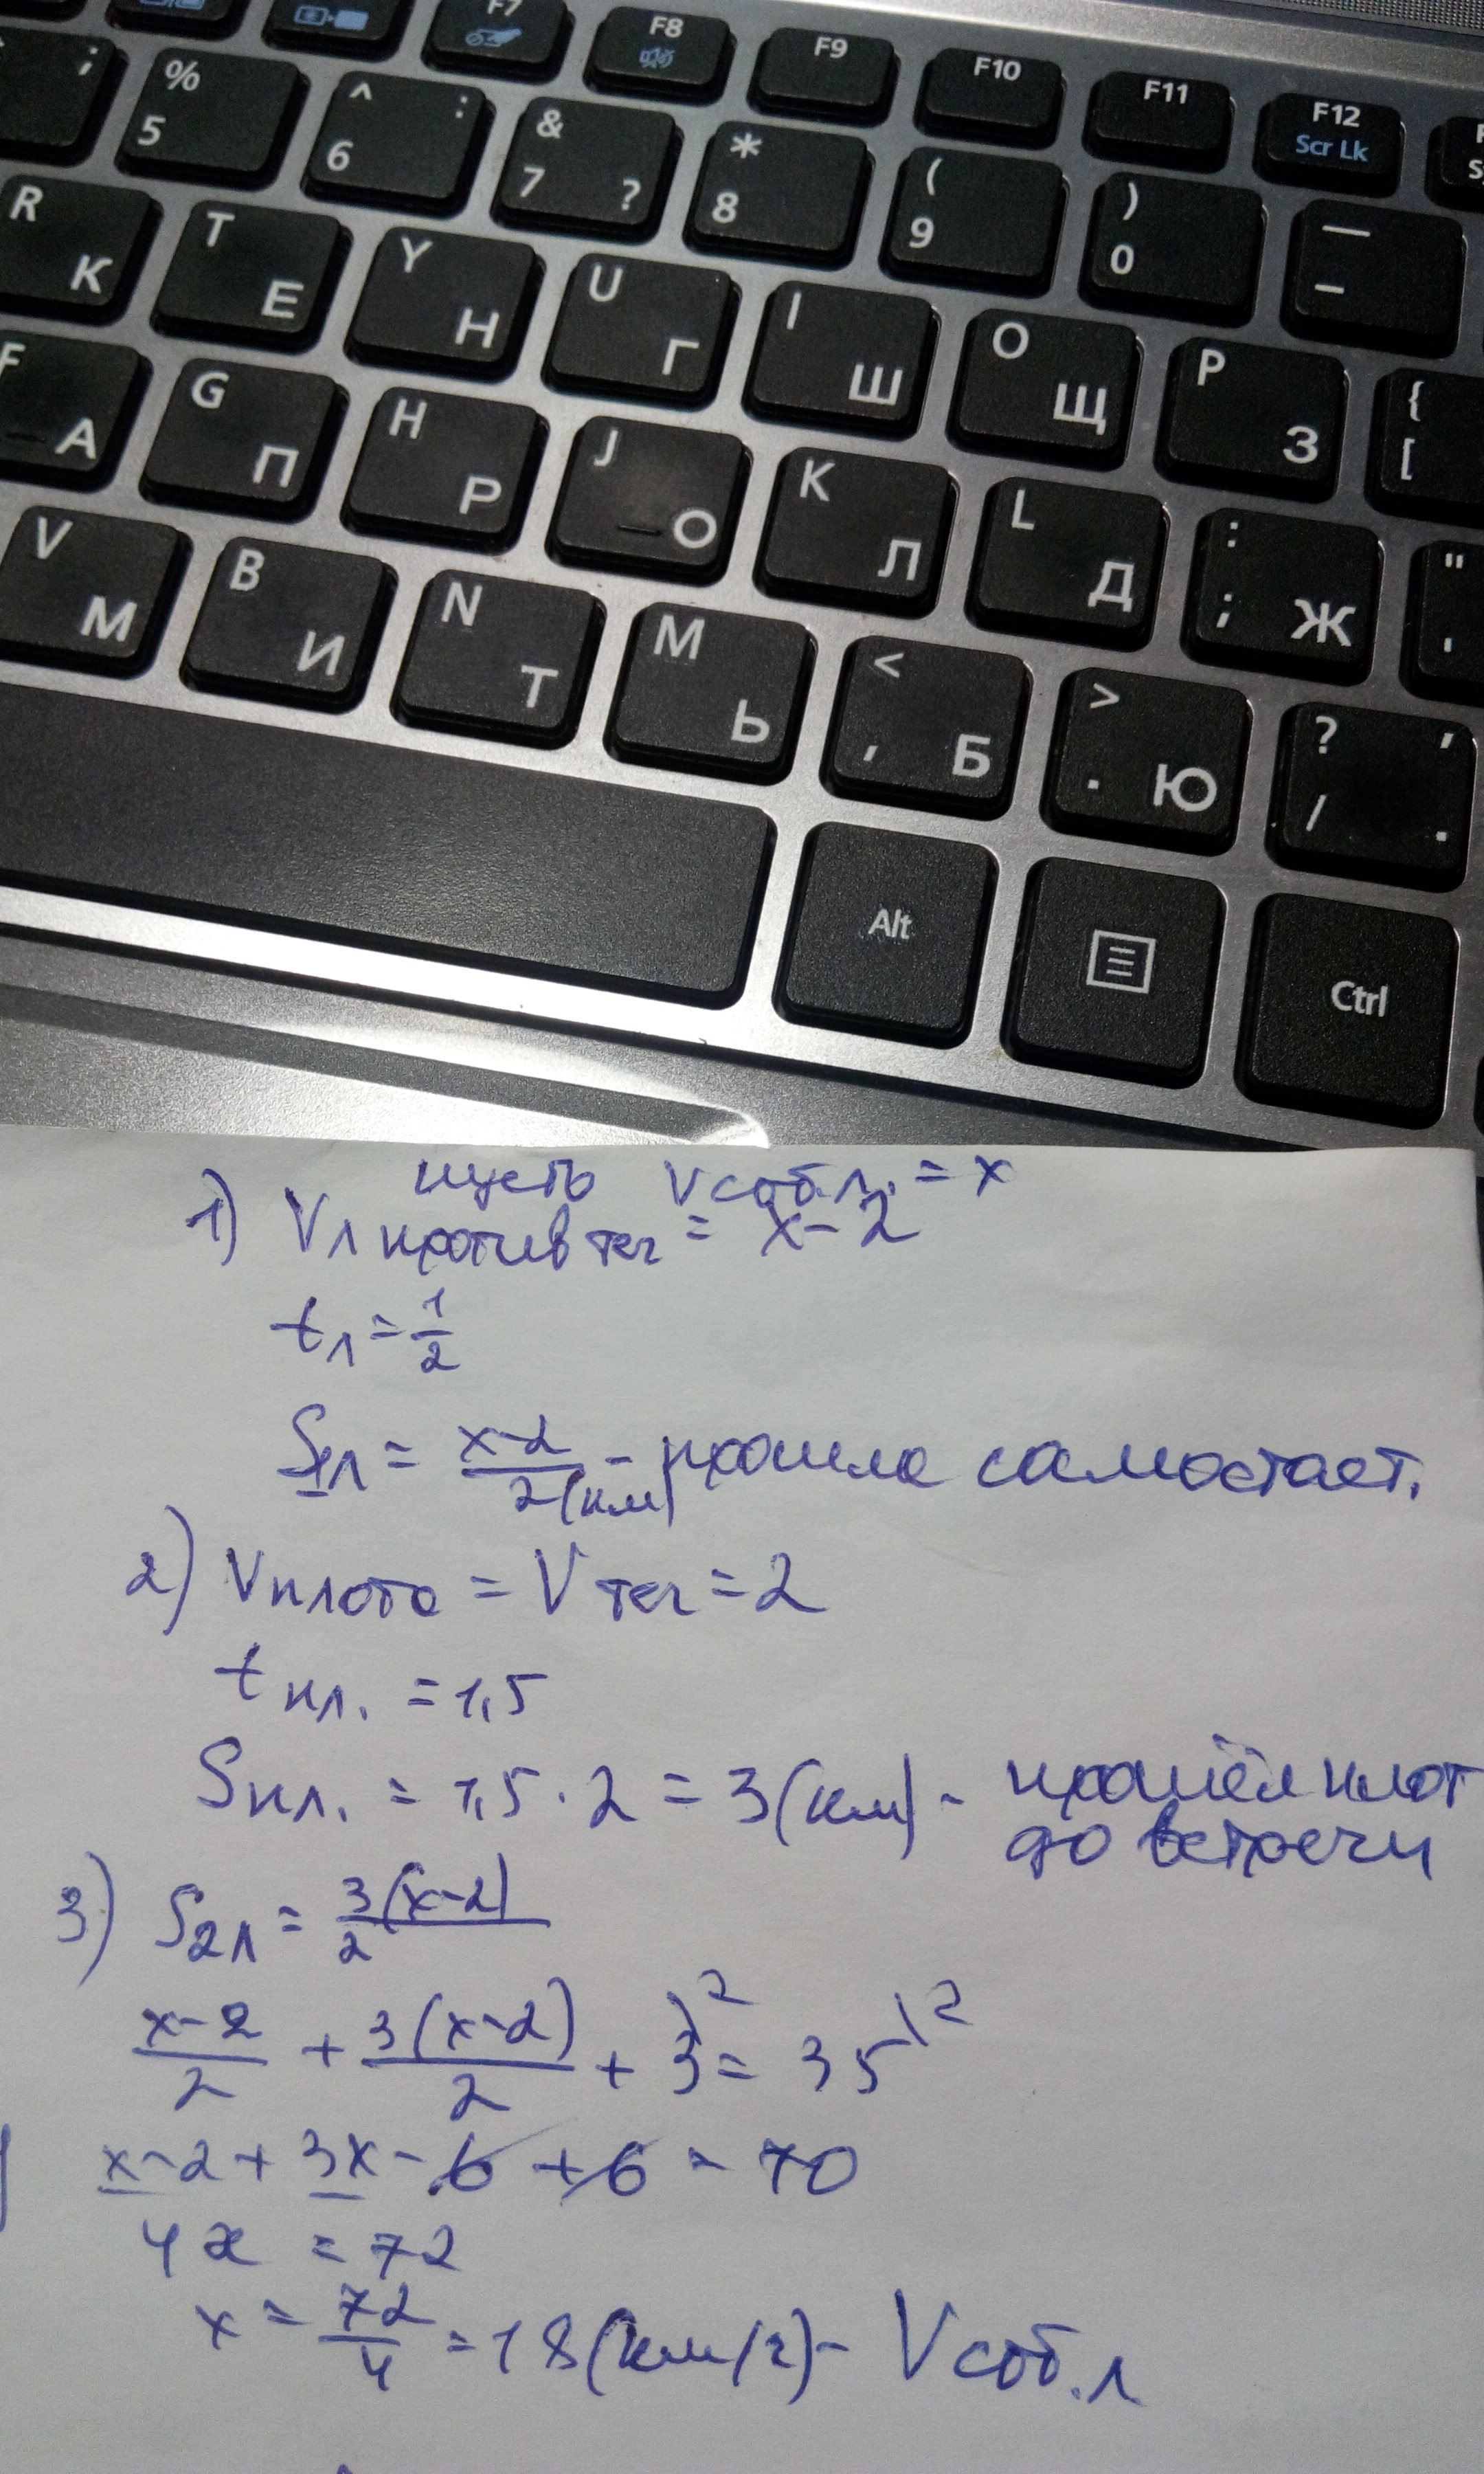 F7 F8 F9 F10 F11 F12
Scr Lk
; % 5 ^ : 6 & 7 ? * 8 ( 9 ) 0 — –
R К T Е Y Н U Г I Ш O Щ P З { [
F А G П H Р J О K Л L Д : ; Ж " '
V М B И N Т M Ь < , Б > . Ю ? , / .
Alt Ctrl
пусть Vсоб.л. = x
1) Vл против теч = x-2
tл = 1/2
S1л = x-2/2 (км) - прошла самостоят.
2) Vплота = Vтеч = 2
tпл. = 1,5
Sпл. = 1,5 · 2 = 3 (км) - прошёл плот
до встречи
3) S2л = 3(x-2)/2
x-2/2 + 3(x-2)/2 + 3\2 = 35\2
x-2+3x-6+6 = 70
4x = 72
x = 72/4 = 18 (км/ч) - Vсоб.л